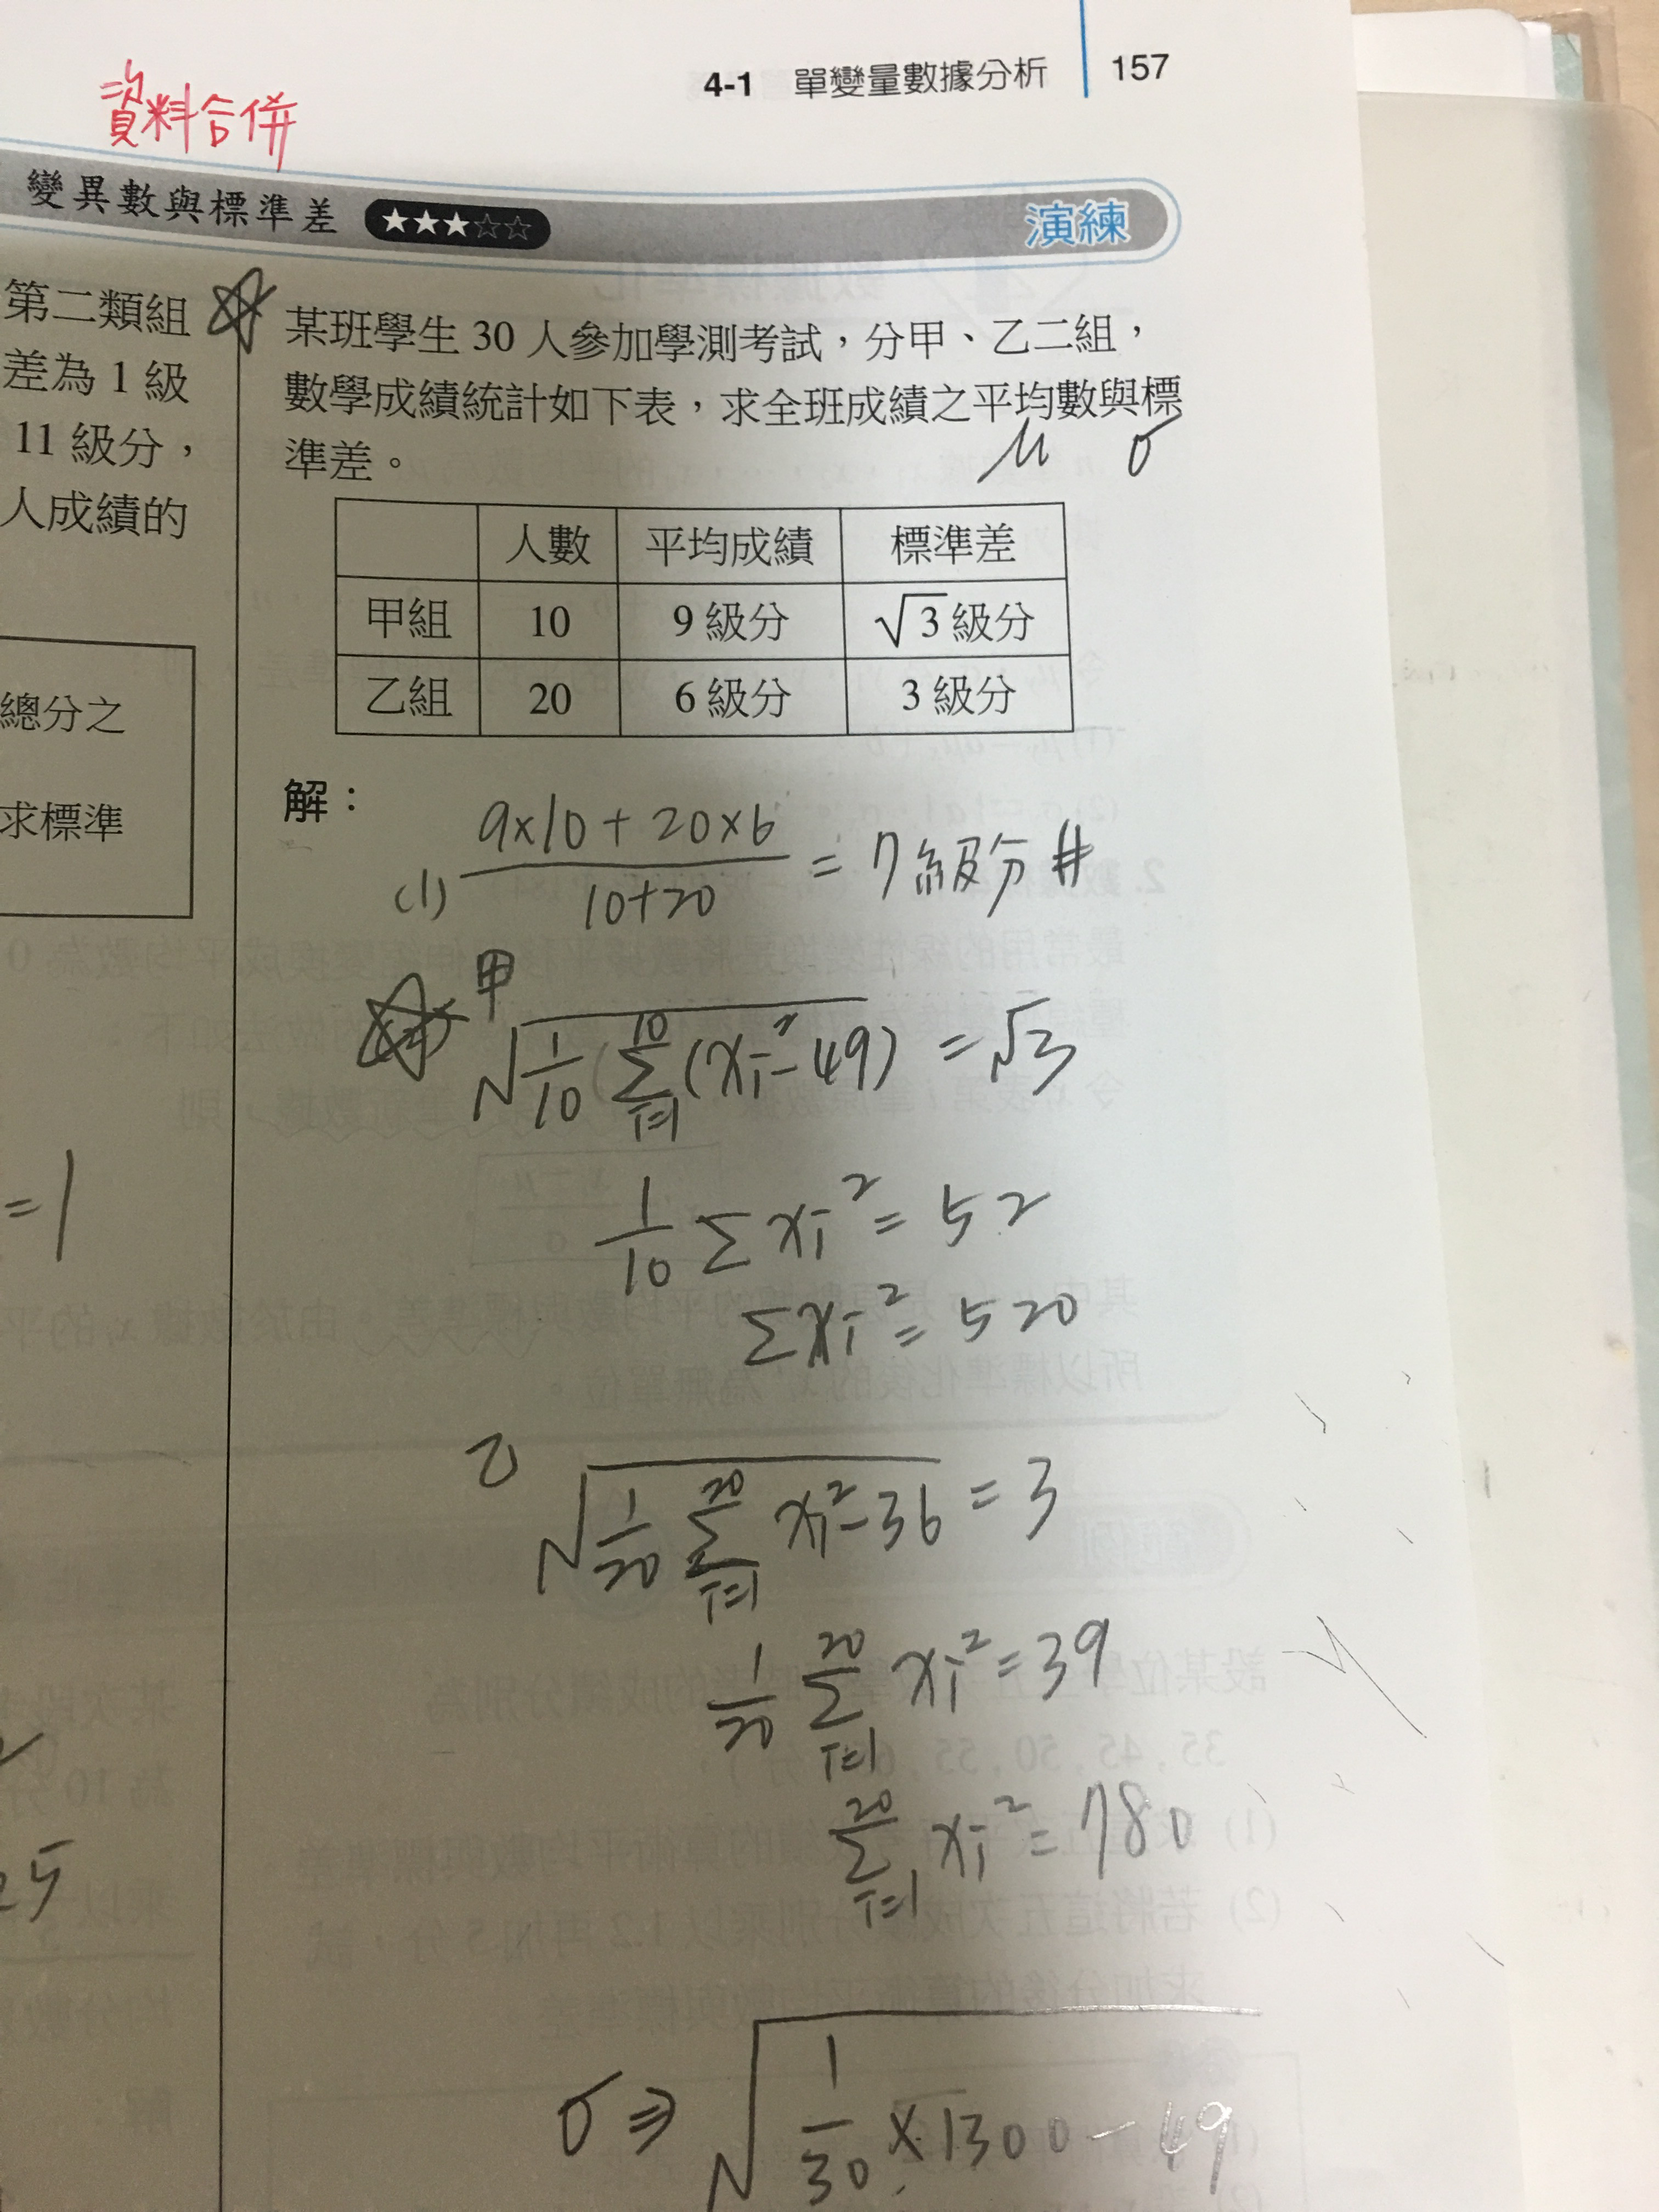 4-1 單變量數據分析 157
資料合併
變異數與標準差 ★★★☆☆ 演練
第二類組
差為 1 級
11 級分，
人成績的
總分之
求標準
=1
25
某班學生 30 人參加學測考試，分甲、乙二組，
數學成績統計如下表，求全班成績之平均數與標
準差。 μ σ
人數 平均成績 標準差
甲組 10 9 級分 √3 級分
乙組 20 6 級分 3 級分
解：
(1) (9×10+20×6)/(10+20) = 7 級分 #
甲
√(1/10 Σ_{i=1}^{10} (xi²-49)) = √3
1/10 Σ xi² = 52
Σ xi² = 520
乙 √(1/20 Σ_{i=1}^{20} xi²-36) = 3
1/20 Σ_{i=1}^{20} xi² = 39
Σ_{i=1}^{20} xi² = 780
σ ⇒ √(1/30 × 1300 - 49)